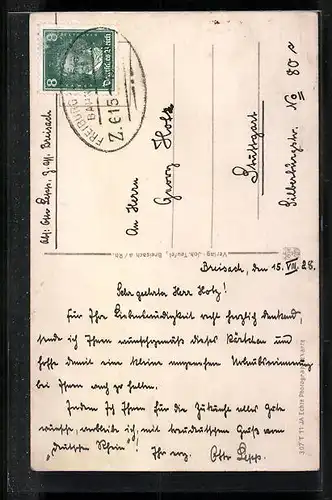 8 Deutsches Reich 8
FREIBURG
BAHN
Z. 615
Abs: Otto Lepp, Breisach
An Herrn
Georg Hotz
Stuttgart
Silberburgstr. No 80 a
Verlag Joh. Teufel, Breisach a/Rh.
Breisach, den 15. VII. 28.
Sehr geehrter Herr Hotz!
Für Ihre Liebenswürdigkeit recht herzlich dankend,
sende ich Ihnen wunschgemäss dieses Kärtchen und
hoffe damit eine kleine angenehme Urlaubserinnerung
bei Ihnen wach zu halten.
Indem ich Ihnen für die Zukunft alles Gute
wünsche, verbleibe ich, mit treudeutschem Gruss vom
„deutschen Rhein"! Ihr erg. Otto Lepp.
Echte Photographie